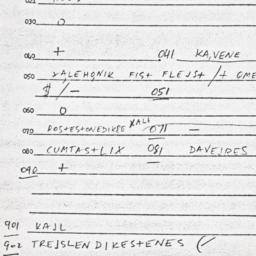 030 0
040 + 041 KA,VENE
050 XALEHONIK FIST FLEJST /+ OME
$ /- 051
060 0
070 ROSTESTONEDIKSE XALI 071 -
080 CUMTASTLIX 081 DAVEIRES
090 +
901 VAJL
902 TREJSLENDIKESTENES (/